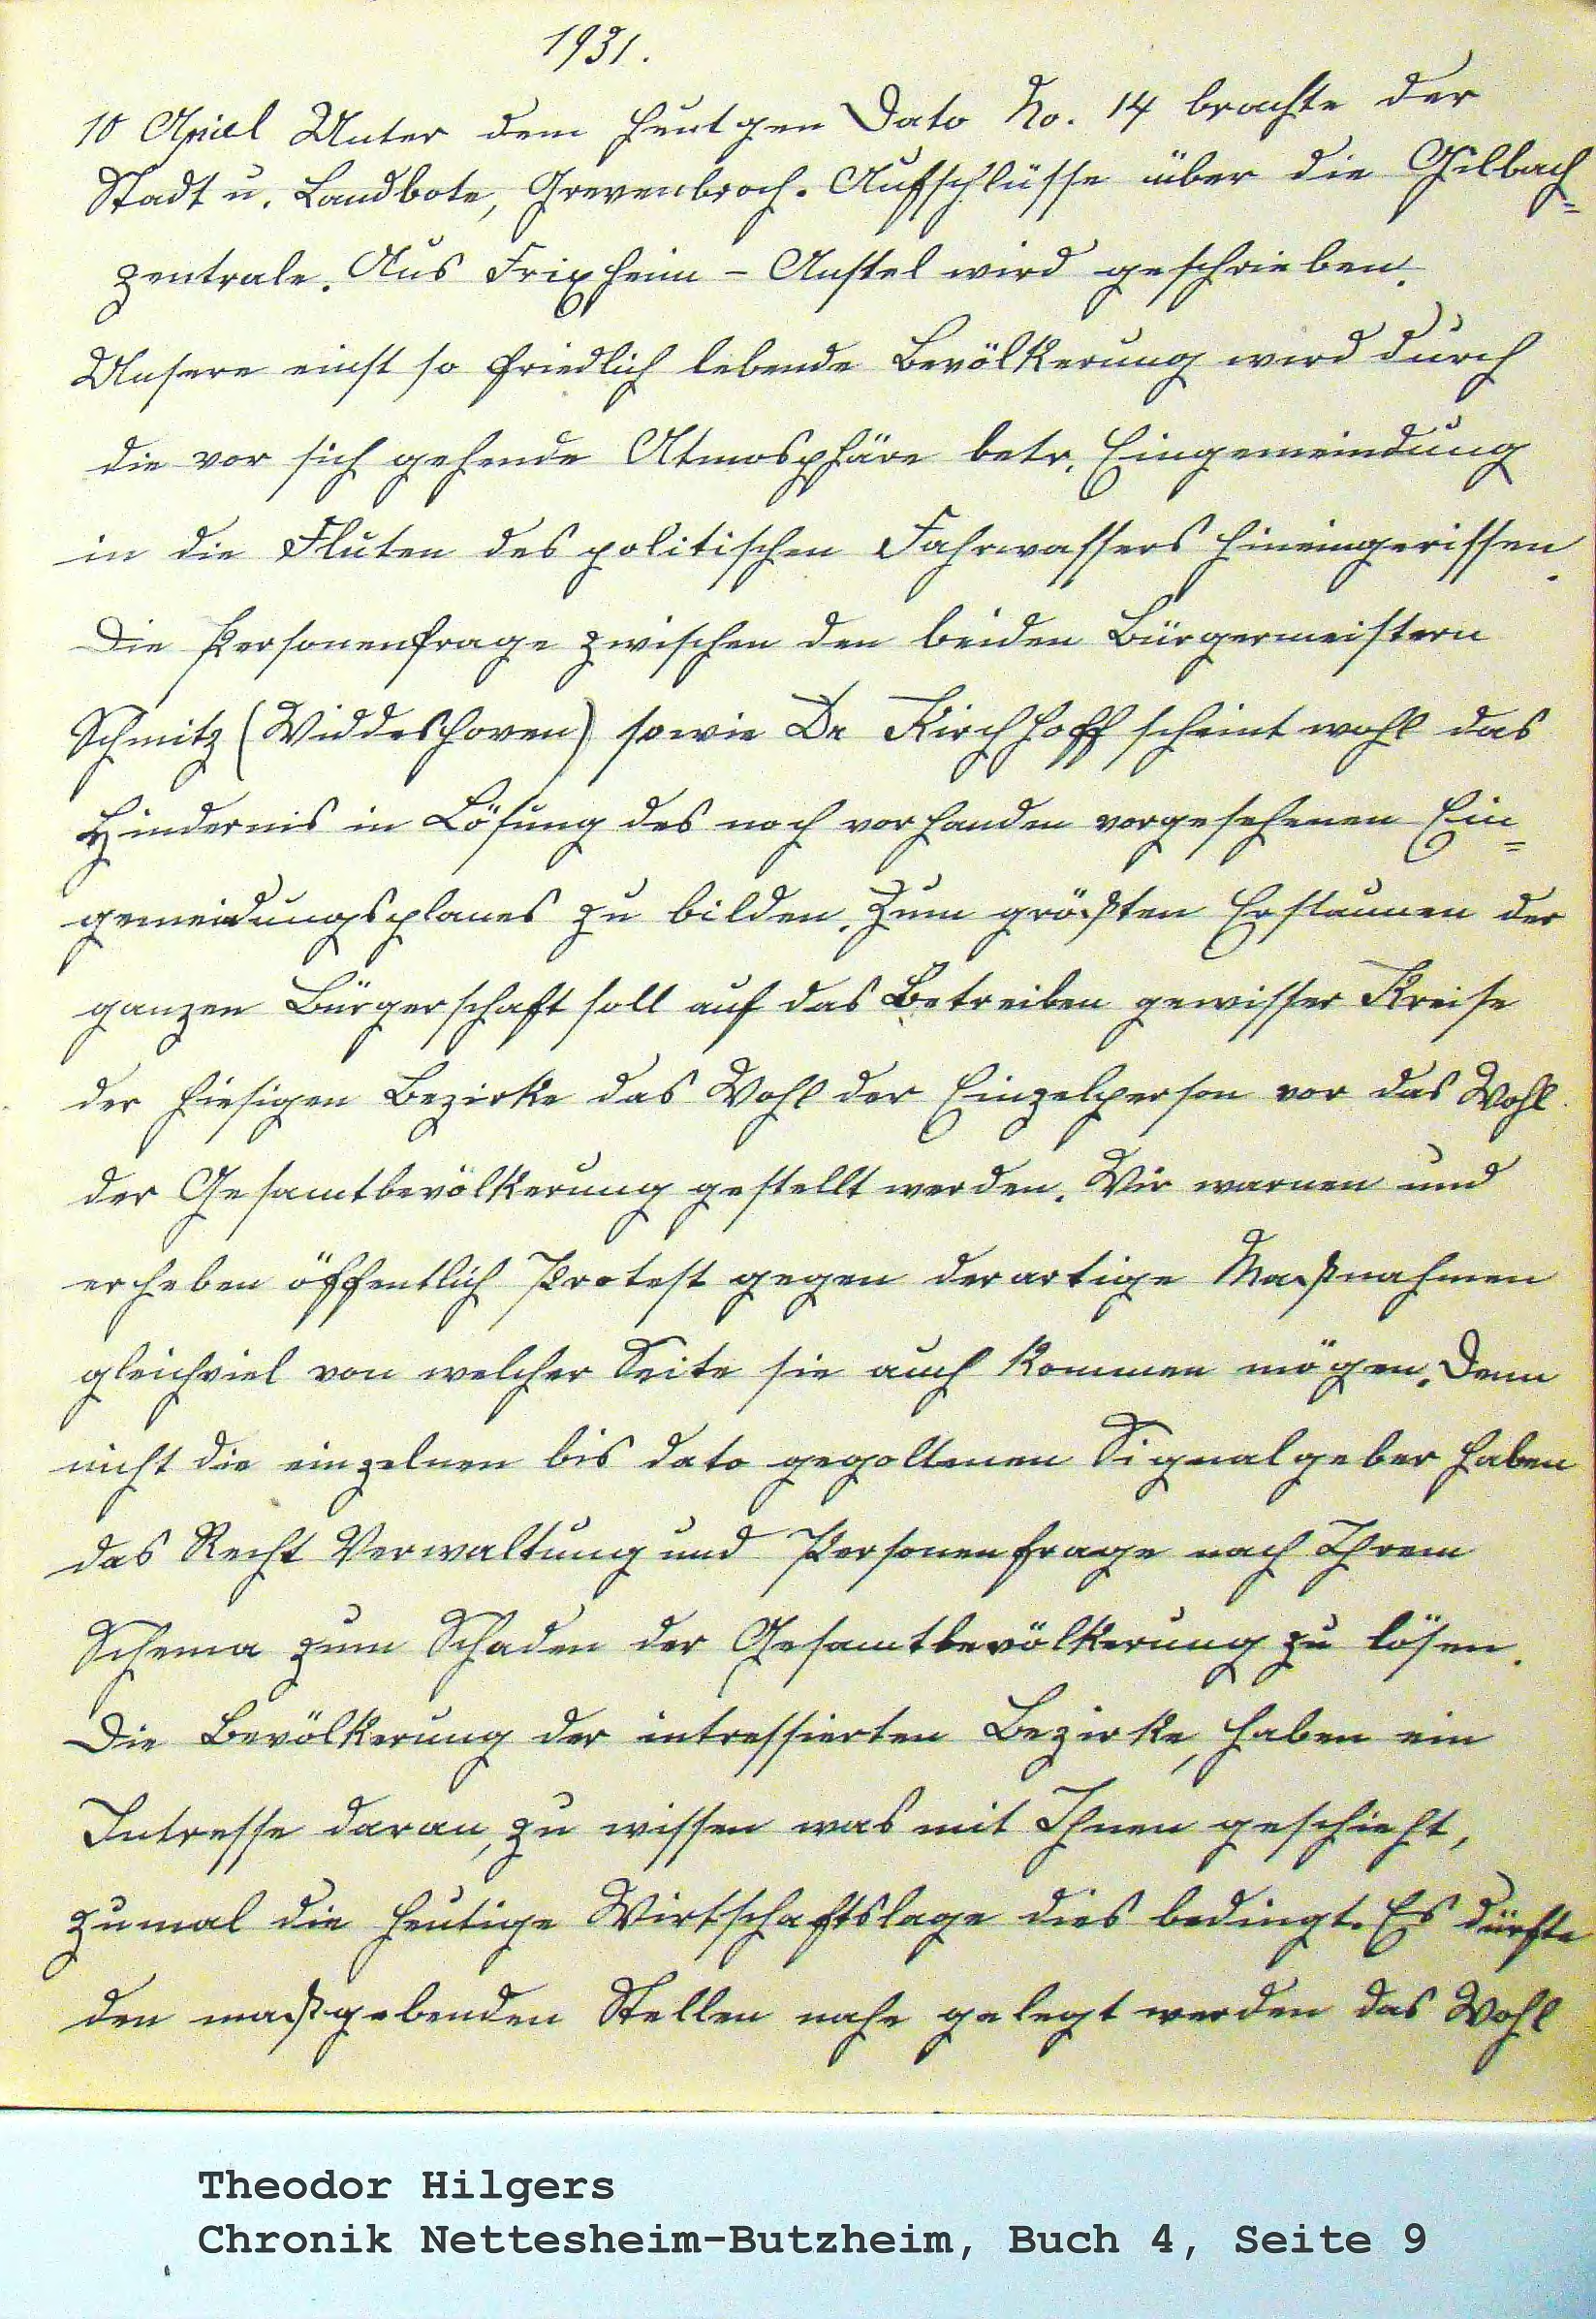 1931.
10 April Unter dem heutgen Dato No. 14 brachte der
Stadt u. Landbote, Grevenbroch. Aufschlüsse über die Gilbach=
zentrale. Aus Frixheim - Anstel wird geschrieben.
Unsere einst so friedlich lebende Bevölkerung wird durch
die vor sich gehende Atmosphäre betr. Eingemeindung
in die Fluten des politischen Fahrwassers hineingerissen.
Die Personenfrage zwischen den beiden Bürgermeistern
Schmitz (Widdeshoven) sowie Dr Kirchhoff scheint wohl das
Hindernis in Lösung des noch vorhanden vorgesehenen Ein=
gemeidungsplanes zu bilden. Zum größten Erstaunen der
ganzen Bürgerschaft soll auf das Betreiben gewisser Kreise
der hiesigen Bezirke das Wohl der Einzelperson vor das Wohl
der Gesamtbevölkerung gestellt werden. Wir warnen und
erheben öffentlich Protest gegen derartige Maßnahmen
gleichviel von welcher Seite sie auch kommen mögen. Denn
nicht die einzelnen bis dato gegoltenen Signalgeber haben
das Recht Verwaltung und Personenfrage nach Ihrem
Schema zum Schaden der Gesamtbevölkerung zu lösen.
Die Bevölkerung der intressierten Bezirke, haben ein
Intresse daran, zu wissen was mit Ihnen geschieht,
zumal die heutige Wirtschaftslage dies bedingt. Es dürfte
den maßgebenden Stellen nahe gelegt werden das Wohl
Theodor Hilgers
Chronik Nettesheim-Butzheim, Buch 4, Seite 9